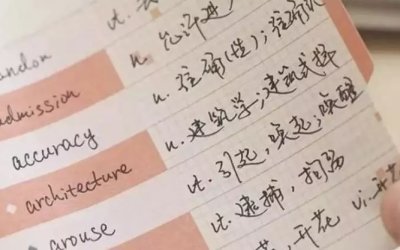 ndon vt.
admission n. 允许进
accuracy n. 准确(性); 准确
architecture n. 建筑学; 建筑式样
arouse vt. 引起, 唤起; 唤醒
vt. 逮捕, 拘留
开花 vi. 开花